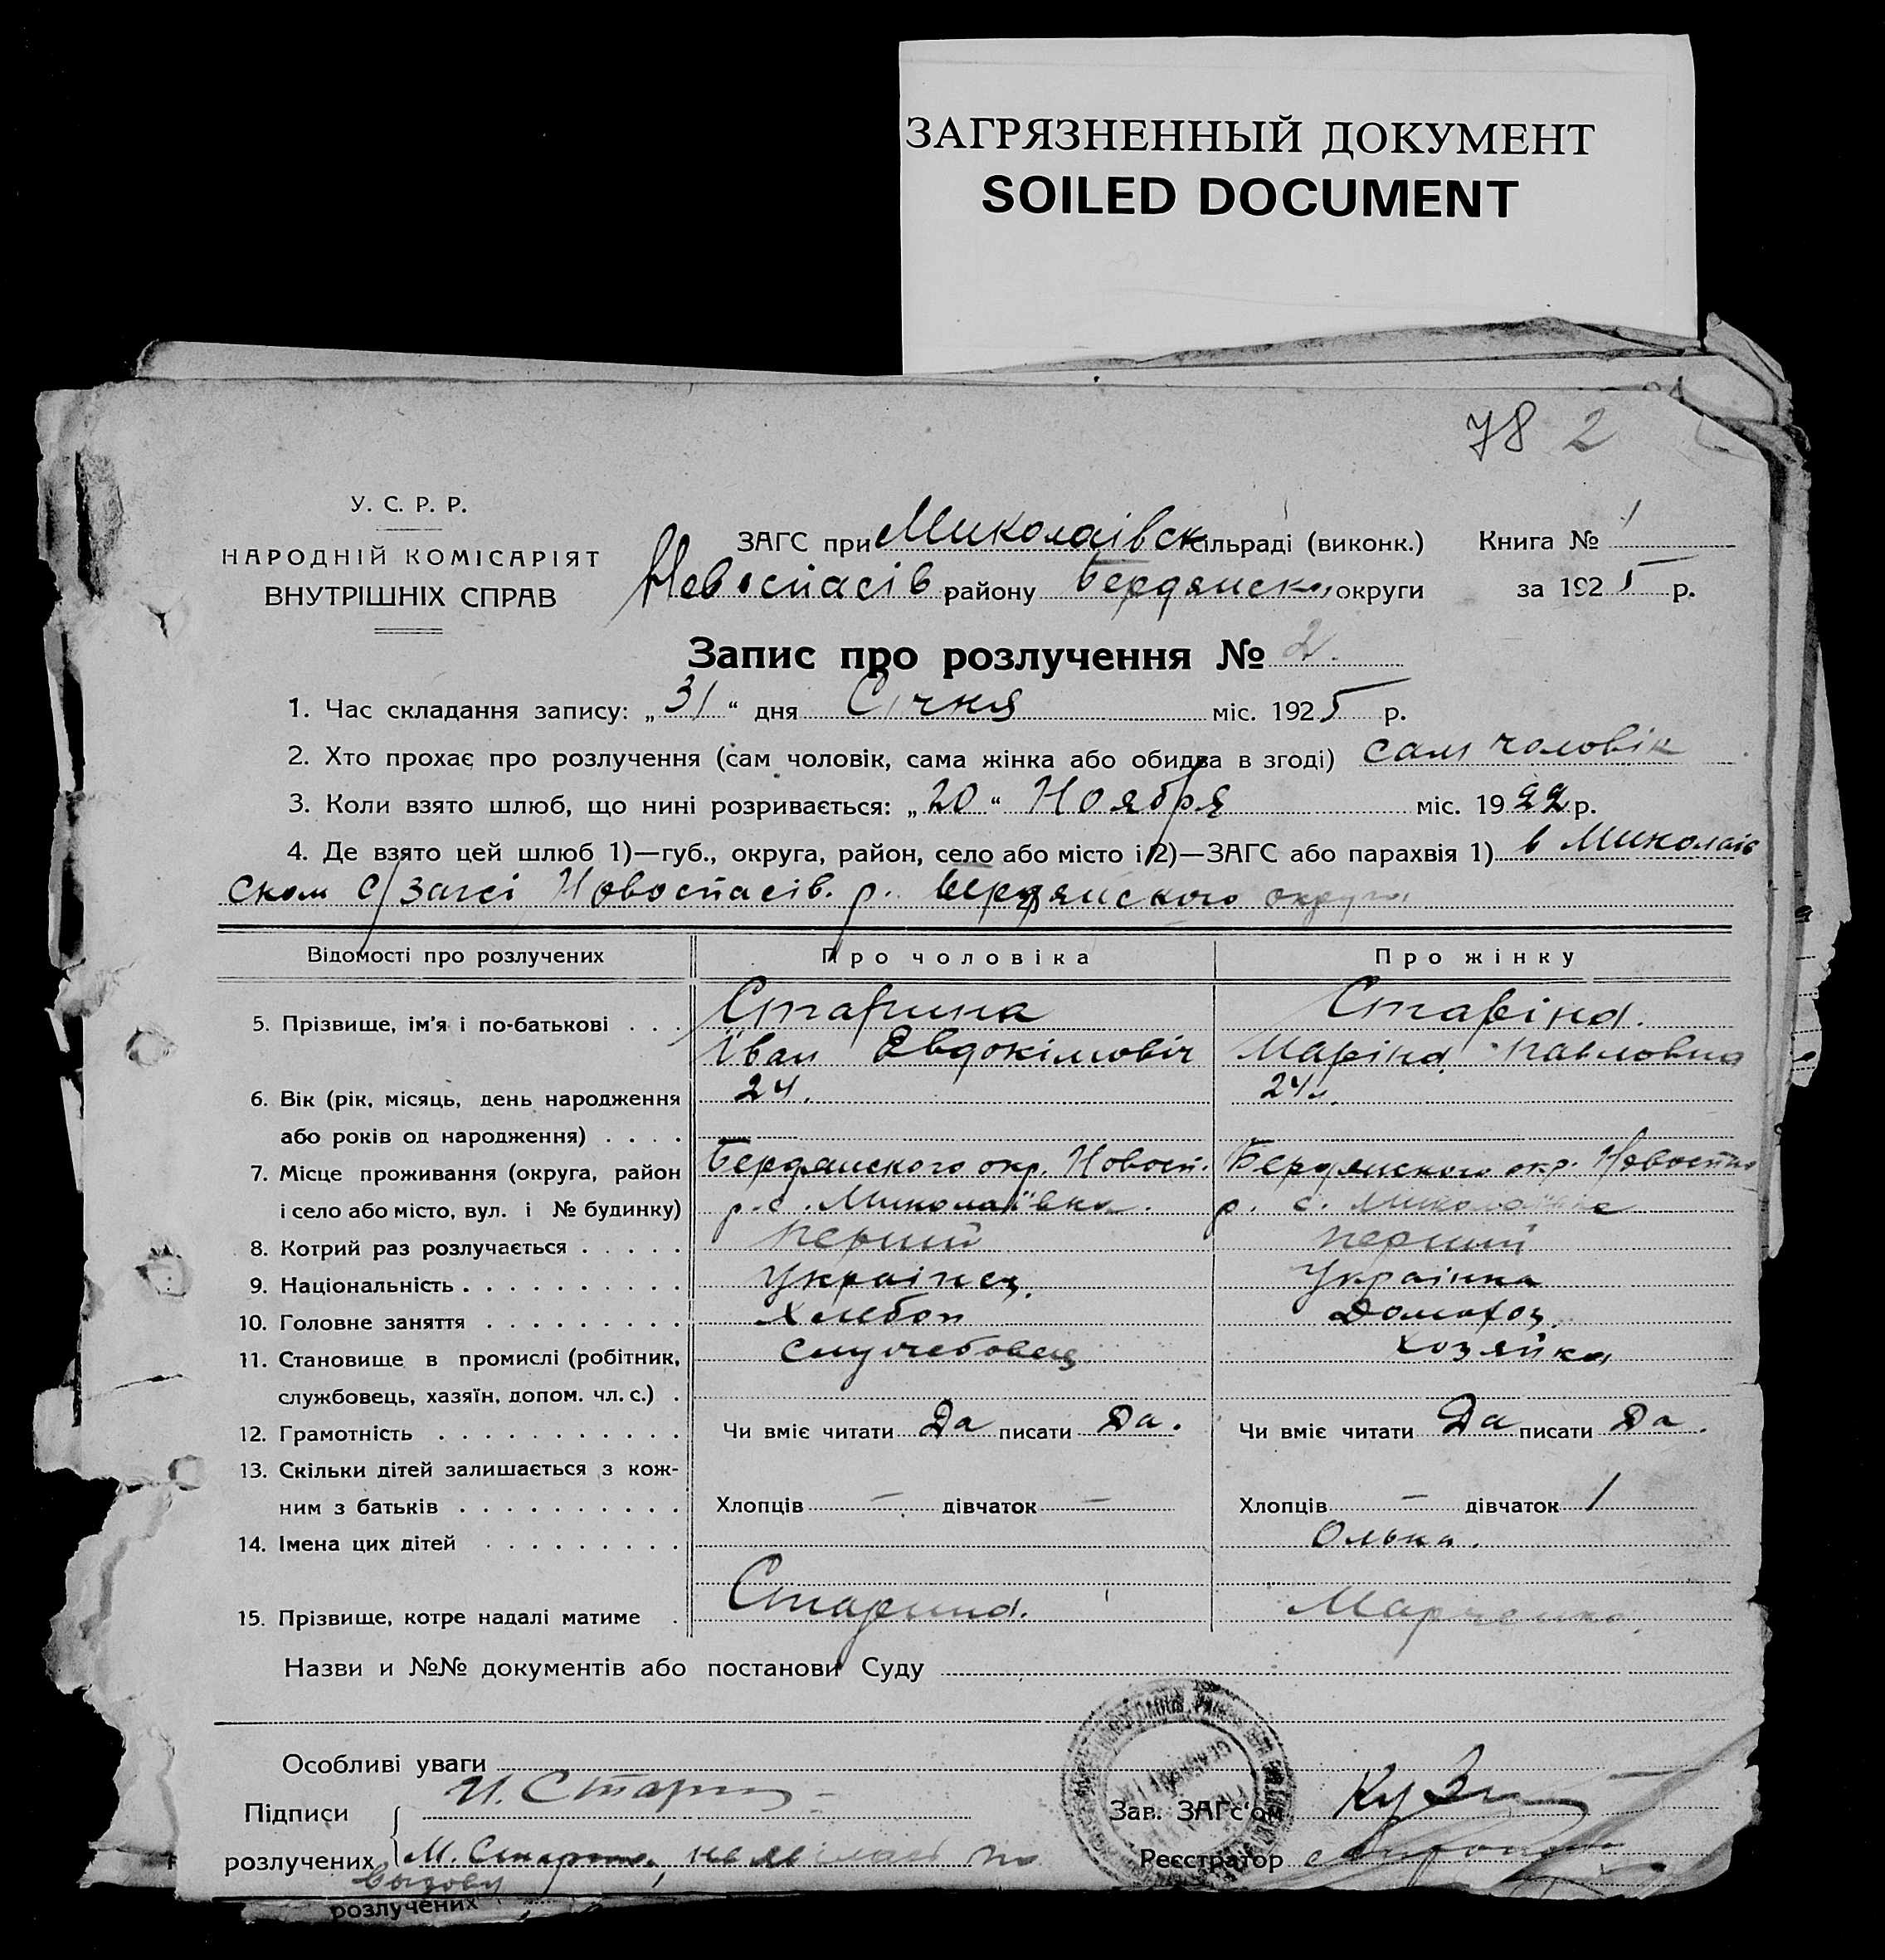 ЗАГРЯЗНЕННЫЙ ДОКУМЕНТ
SOILED DOCUMENT
78 2
У. С. Р. Р.
НАРОДНІЙ КОМІСАРІЯТ
ВНУТРІШНІХ СПРАВ
ЗАГС при Миколаівск сільраді (виконк.) Книга № 1
Новоспасів району Бердянско округи за 1925 р.
Запис про розлучення № 2.
1. Час складання запису: „31“ дня Січня міс. 1925 р.
2. Хто прохає про розлучення (сам чоловік, сама жінка або обидва в згоді) сам чоловік
3. Коли взято шлюб, що нині розривається: „20“ Ноября міс. 1922 р.
4. Де взято цей шлюб 1)—губ., округа, район, село або місто і 2)—ЗАГС або парахвія 1) в Миколаів
ском с/загсі Новоспасів. р. Бердянского округа
Відомості про розлучених Про чоловіка Про жінку
5. Прізвище, ім'я і по-батькові . . . Старина Старіна.
Іван Евдокімовіч Маріна Павловна
6. Вік (рік, місяць, день народження 24. 24 л.
або років од народження) . . . .
7. Місце проживання (округа, район Бердянского окр. Новосп. Бердянского окр. Новоспас
і село або місто, вул. і № будинку) р. с. Миколаївка. р. с. Миколаївка
8. Котрий раз розлучається . . . . . перший перший
9. Національність . . . . . . . . . . Украінец. Украінка
10. Головне заняття . . . . . . . . . Хлебоп Домахоз.
11. Становище в промислі (робітник, служебовец хозяйка
службовець, хазяїн, допом. чл. с.) .
12. Грамотність . . . . . . . . . . . Чи вміє читати Да писати Да. Чи вміє читати Да писати Да.
13. Скільки дітей залишається з кож-
ним з батьків . . . . . . . . . . Хлопців — дівчаток — Хлопців — дівчаток 1
14. Імена цих дітей . . . . . . . . . Ольна.
15. Прізвище, котре надалі матиме . Старина. Марченко.
Назви и №№ документів або постанови Суду
Особливі уваги
Підписи И. Старин Зав. ЗАГс'ом Кузь
розлучених М. Старина, не явілась по Реєстратор
вызову
розлучених